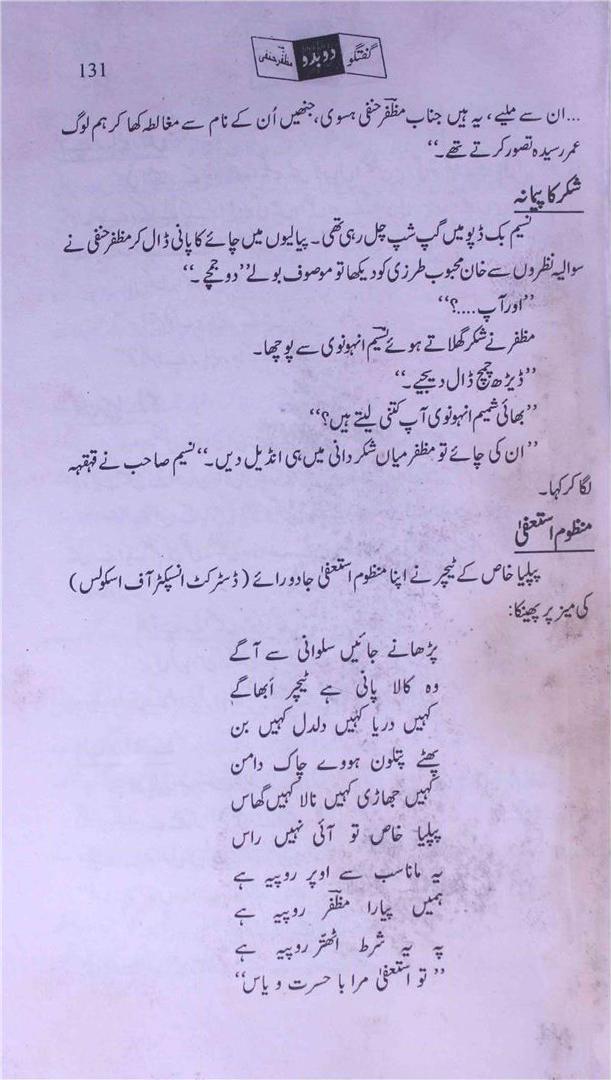 131
گفتگو دوبدو مظفر حنفی
...ان سے ملیے، یہ ہیں جناب مظفرؔ حنفی ہسوی، جنھیں اُن کے نام سے مغالطہ کھا کر ہم لوگ
عمر رسیدہ تصور کرتے تھے۔‘‘
شکر کا پیمانہ
نسیم بک ڈپو میں گپ شپ چل رہی تھی۔ پیالیوں میں چائے کا پانی ڈال کر مظفر حنفی نے
سوالیہ نظروں سے خان محبوب طرزی کو دیکھا تو موصوف بولے ’’دو چمچے۔‘‘
’’اور آپ....؟‘‘
مظفر نے شکر گھلاتے ہوئے نسیمؔ انہونوی سے پوچھا۔
’’ڈیڑھ چمچ ڈال دیجیے۔‘‘
’’بھائی شمیم انہونوی آپ کتنی لیتے ہیں؟‘‘
’’ان کی چائے تو مظفر میاں شکر دانی میں ہی انڈیل دیں۔‘‘ نسیم صاحب نے قہقہہ
لگا کر کہا۔
منظوم استعفیٰ
پپلیا خاص کے ٹیچر نے اپنا منظوم استعفیٰ جادو رائے (ڈسٹرکٹ انسپکٹر آف اسکولس)
کی میز پر پھینکا:
پڑھانے جائیں سلوانی سے آگے
وہ کالا پانی ہے ٹیچر ابھاگے
کہیں دریا کہیں دلدل کہیں بن
پھٹے پتلون ہووے چاک دامن
کہیں جھاڑی کہیں نالا کہیں گھاس
پپلیا خاص تو آئی نہیں راس
یہ مانا سب سے اوپر روپیہ ہے
ہمیں پیارا مظفرؔ روپیہ ہے
پہ یہ شرط اٹھتر روپیہ ہے
’’تو استعفیٰ مرا با حسرت و یاس‘‘